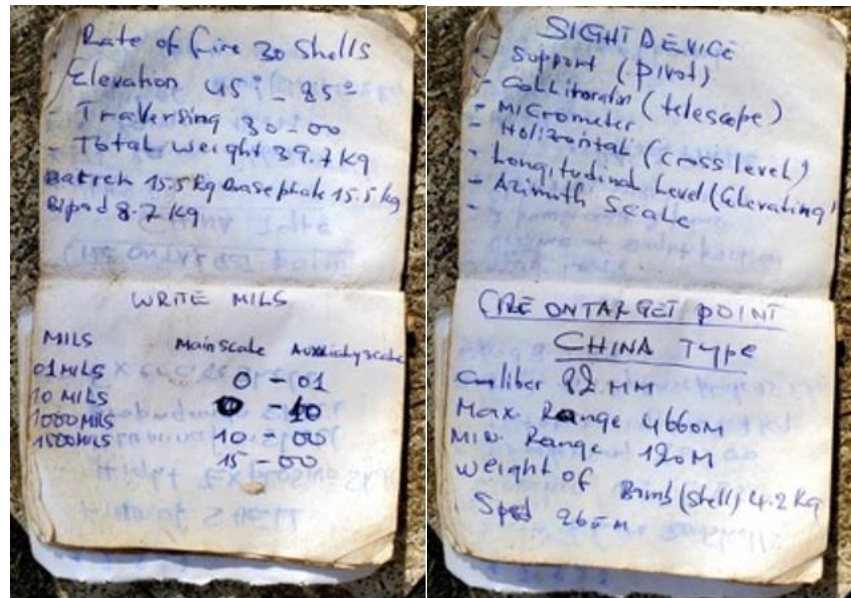 Rate of fire 30 Shells
- Elevation 45° - 85°
- Traversing 30-00
- Total weight 39.7 kg
15.5 kg 15.5 kg
Bipod 8.7 kg
WRITE MILS
MILS Main scale
01 MILS 0 - 01
10 MILS 0 - 10
1000 MILS 10 - 00
1500 MILS 15 - 00
SIGHT DEVICE
- Support (pivot)
- (telescope)
- MICrometer
- Holizontal (cross level)
- Longitudinal Level (Elevating)
- Azimuth Scale
FIRE ON TARGET POINT
CHINA TYPE
Caliber 82 MM
Max. Range 4660M
Min. Range 120M
weight of Bomb (shell) 4.2 kg
265 m